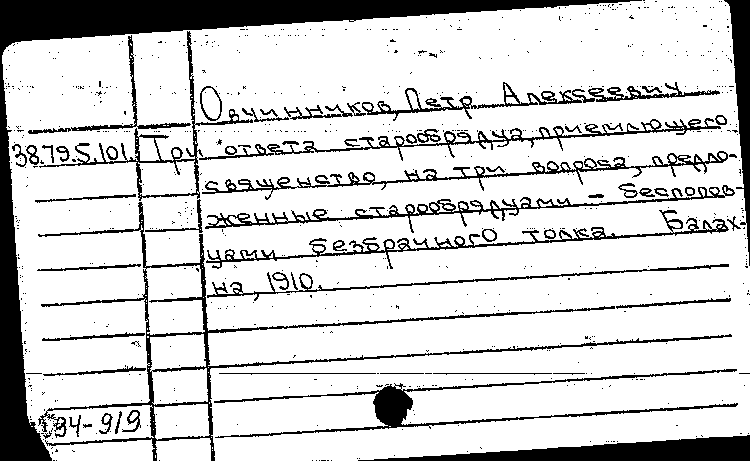 Овчинников, Петр Алексеевич
38.79.5.101. Три ответа старообрядца, приемлющего
священство, на три вопроса, предло-
женные старообрядцами – беспопов-
цами безбрачного толка. Балах-
на, 1910.
94-9/9